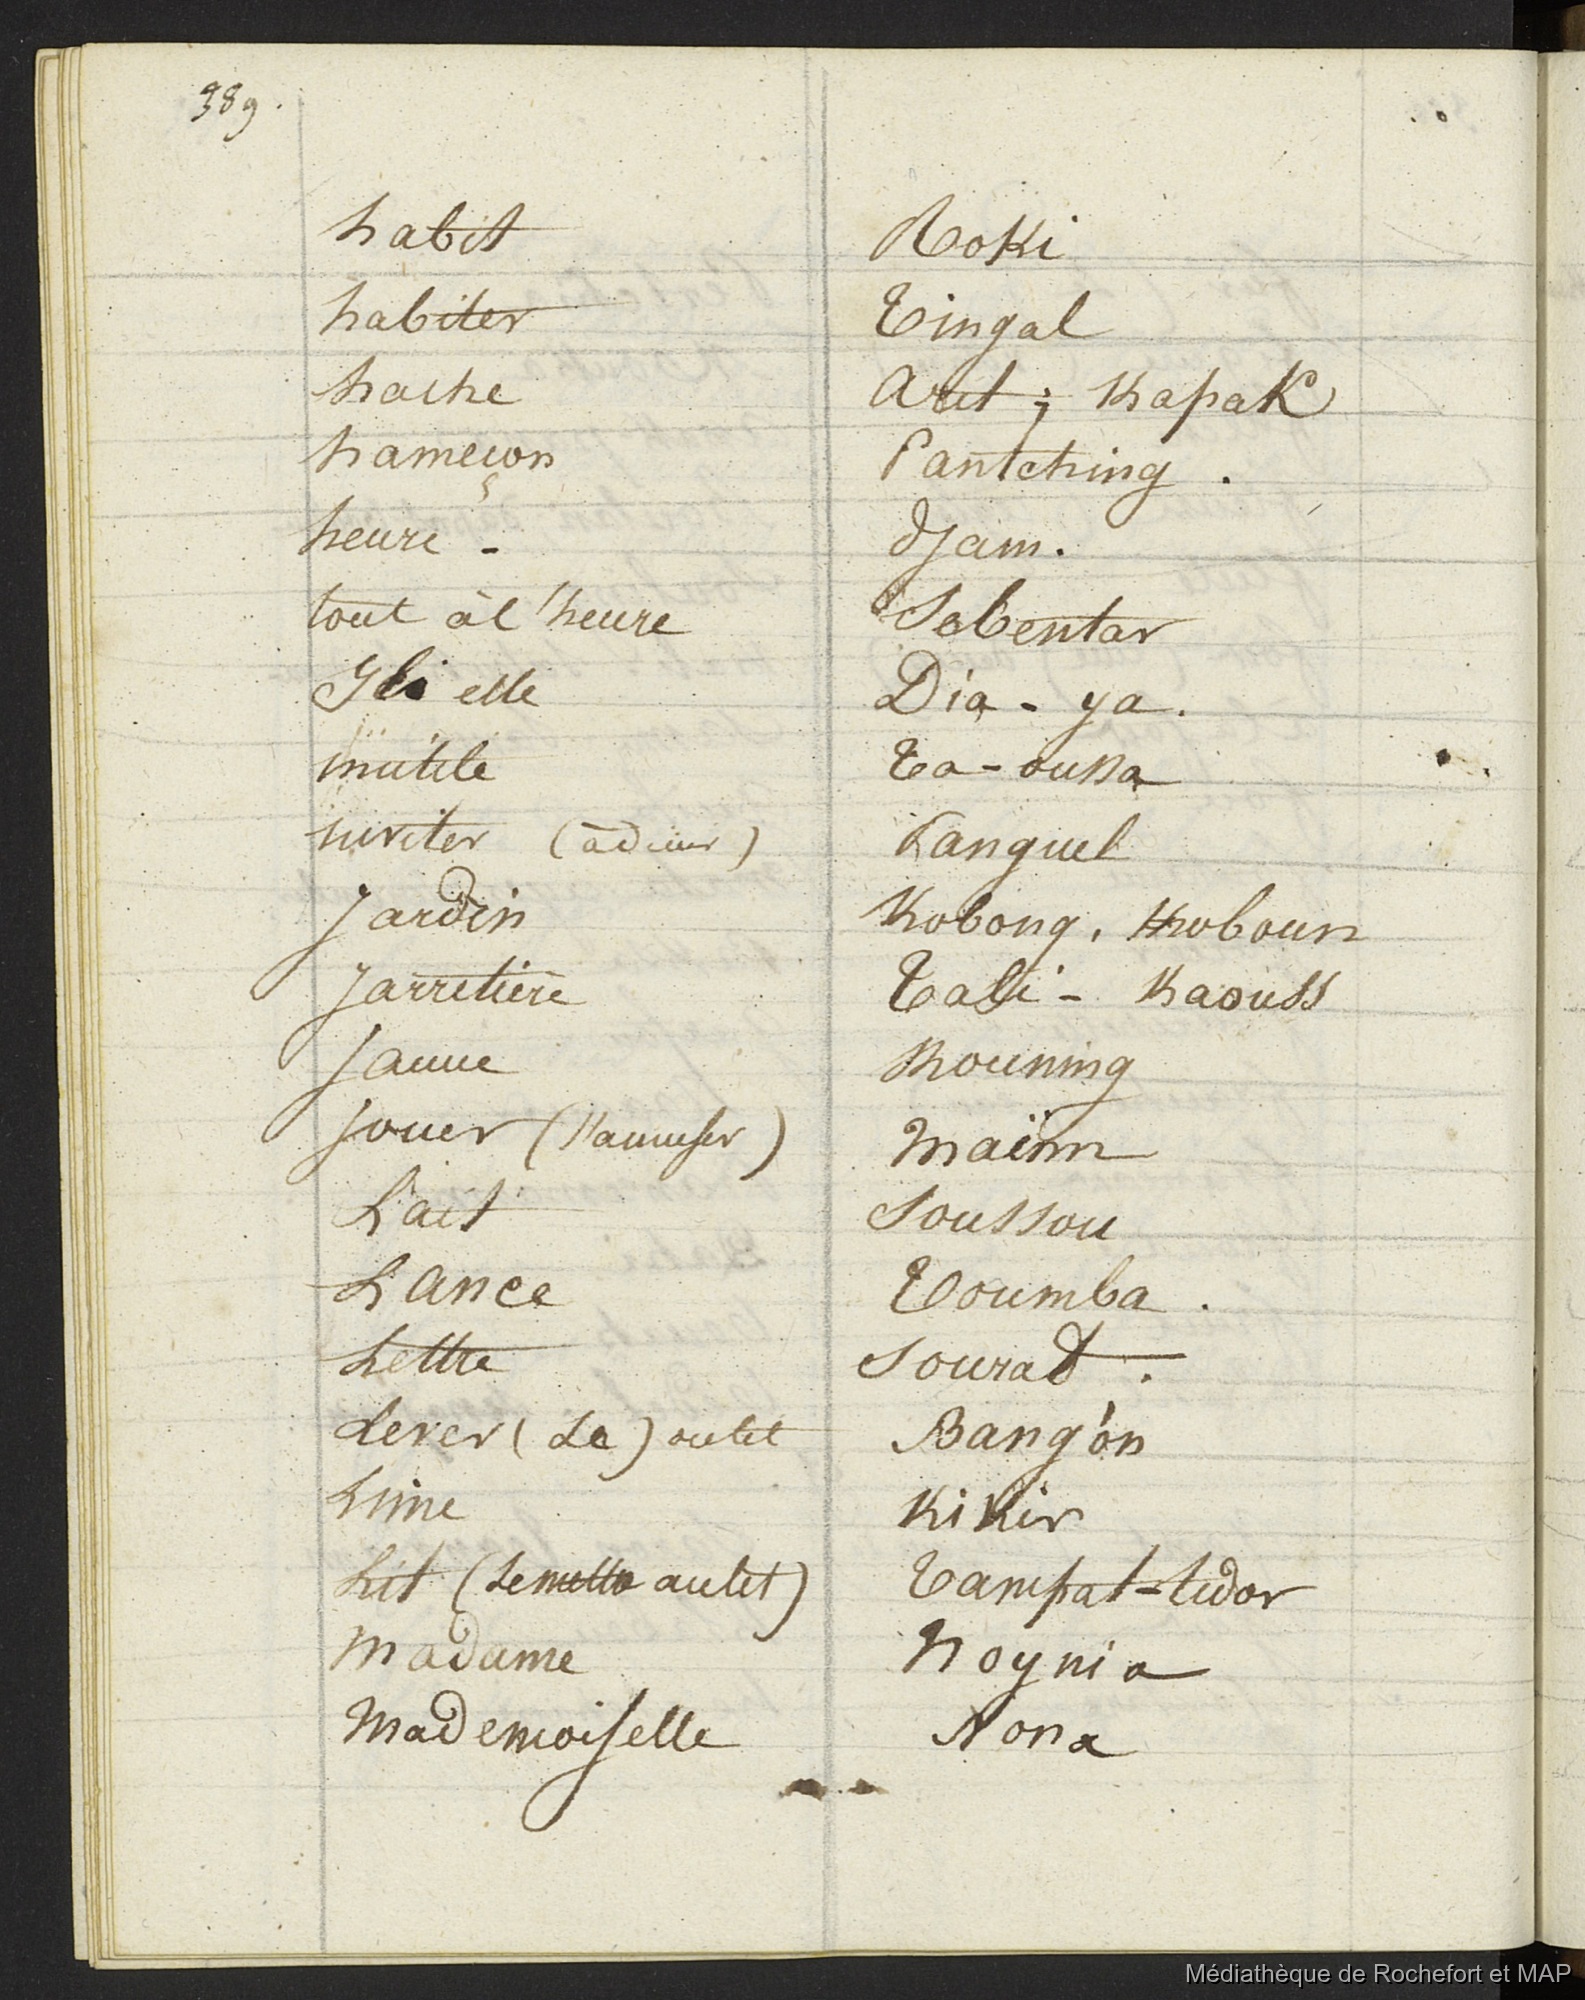 389.
habit Roki
habiter Tingal
hache Arit ; Kapak
hameçon Pantching .
heure - djam.
tout à l'heure Sebentar
Il elle Dia - ya.
inutile Ta - oussa
inviter (à diner) Panguel
Jardin Kobong, Koboun
Jarretière Tali - Kaouss
Jaune Kouning
Jouer (s'amuser) Maïnn
Lait Soussou
Lance Toumba .
Lettre Sourat .
Lever (se) du lit Bang'on
Lime Kikir
Lit (se mettre au lit) Tampat-tidor
Madame Noynia
Mademoiselle Nona
Médiathèque de Rochefort et MAP